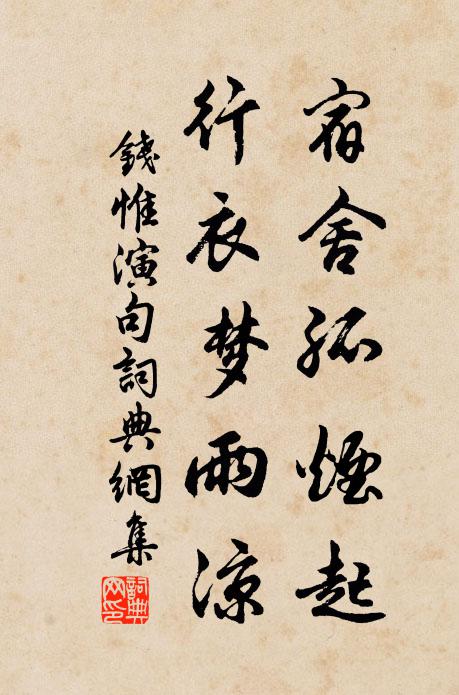 宿舍孤煙起
行衣梦雨涼
錢惟演句詞典網集
詞典网印